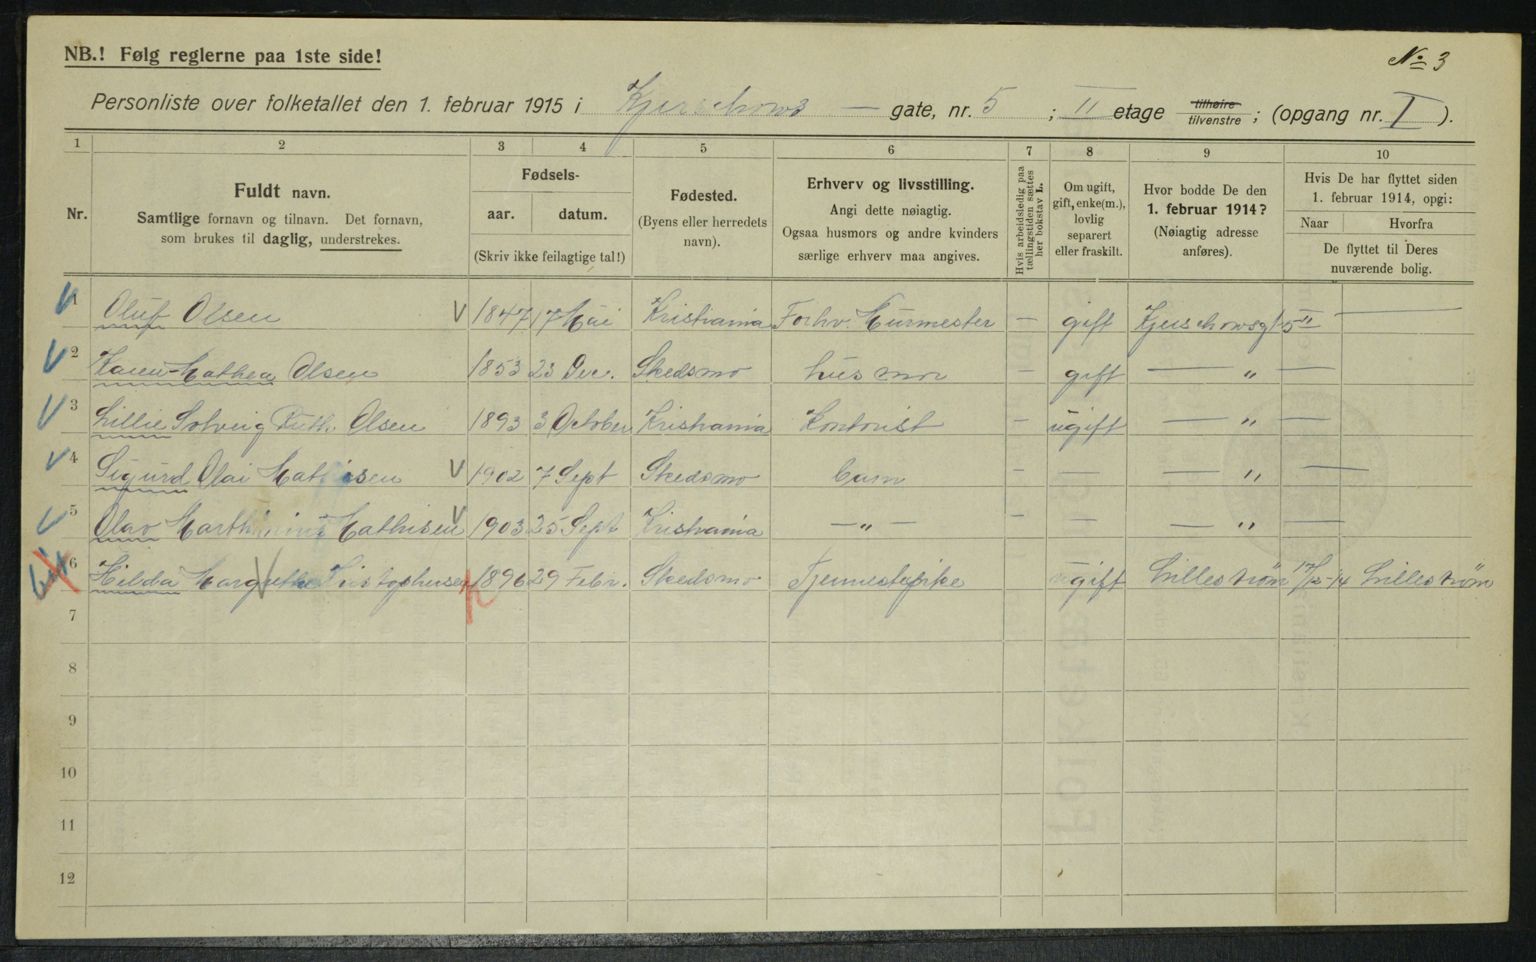 No 3
NB.! Følg reglerne paa 1ste side!
Personliste over folketallet den 1. februar 1915 i Kjerschows — gate, nr. 5 ; II etage tilhøire tilvenstre ; (opgang nr. I ).
1 2 3 4 5 6 7 8 9 10
Nr.
Fuldt navn.
Samtlige fornavn og tilnavn. Det fornavn,
som brukes til daglig, understrekes.
Fødsels-
aar. datum.
(Skriv ikke feilagtige tal!)
Fødested.
(Byens eller herredets
navn).
Erhverv og livsstilling.
Angi dette nøiagtig.
Ogsaa husmors og andre kvinders
særlige erhverv maa angives.
Hvis arbeidsledig paa
tællingstiden sættes
her bokstav L.
Om ugift,
gift, enke(m.),
lovlig
separert
eller fraskilt.
Hvor bodde De den
1. februar 1914?
(Nøiagtig adresse
anføres).
Hvis De har flyttet siden
1. februar 1914, opgi:
Naar Hvorfra
De flyttet til Deres
nuværende bolig.
1 Oluf Olsen 1847 17 Mai Kristiania Forhv. Murmester — gift Kjerschowsgt 5 II —
2 Karen Mathea Olsen 1853 23 Dec. Skedsmo Husmor — gift — " —
3 Lillie Solveig Ruth Olsen 1893 3 October Kristiania Kontorist — ugift — " —
4 Sigurd Olai Mathisen 1902 7 Sept Skedsmo Barn — — " —
5 Olav Marthinius Mathisen 1903 25 Sept Kristiania — " — — — — " —
6 Hilda Margrethe 1896 29 Febr. Skedsmo Tjenestepike ugift Lillestrøm Lillestrøm
7
8
9
10
11
12